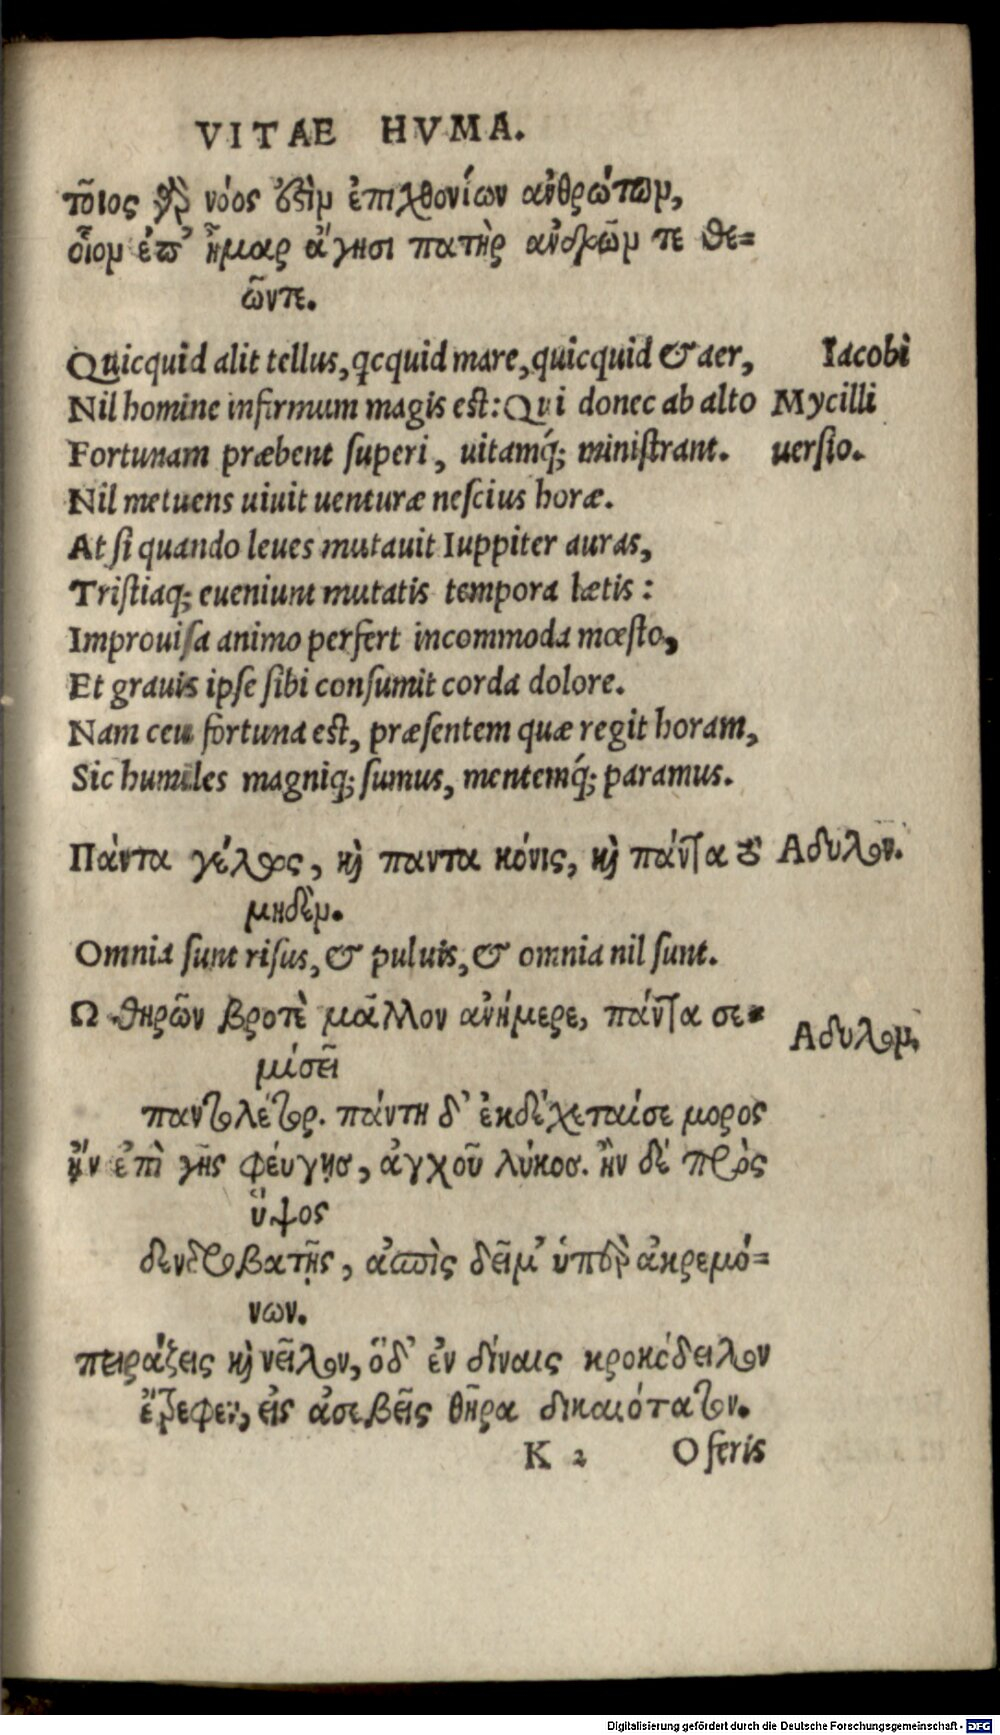 VITAE HVMA.
τοῖος γὰρ νόος ἐστὶμ ἐπιχθονίων ἀνθρώπωμ,
οἷομ ἐπ' ἦμαρ ἄγησι πατὴρ ἀνδρῶμ τε θε=
ῶντε.
Quicquid alit tellus, qcquid mare, quicquid & aer, Iacobi
Nil homine infirmum magis est: Qui donec ab alto Mycilli
Fortunam præbent superi, uitamq́; ministrant. uersio.
Nil metuens uiuit uenturæ nescius horæ.
At si quando leues mutauit Iuppiter auras,
Tristiaq; eueniunt mutatis tempora lætis:
Improuisa animo perfert incommoda mœsto,
Et grauis ipse sibi consumit corda dolore.
Nam ceu fortuna est, præsentem quæ regit horam,
Sic humiles magniq; sumus, mentemq́; paramus.
Πάντα γέλως, κὶ παντα κόνις, κὶ πάντα ȣ̀ Αδυλον.
μηδὲμ.
Omnia sunt risus, & puluis, & omnia nil sunt.
Ω θηρῶν βροτὲ μᾶλλον ἀνήμερε, πάντα σε= Αδυλομ.
μίσεῖ
παντολέτορ. πάντη δ' ἐκδέχεταίσε μορος
ἤν ἐπὶ γῆς φεύγῃσ, ἀγχοῦ λύκοσ. ἢν δέ πρὸς
ὕψος
δενδροβατῇς, ἀσπὶς δεῖμ' ὑπὲρ ἀκρεμό=
νων.
πειράζεις κὶ νεῖλον, ὅδ' ἐν δίναις κροκόδειλον
ἔτρεφεν, εἰς ἀσεβεῖς θῆρα δικαιότατον.
K 2 O feris
Digitalisierung gefördert durch die Deutsche Forschungsgemeinschaft - DFG